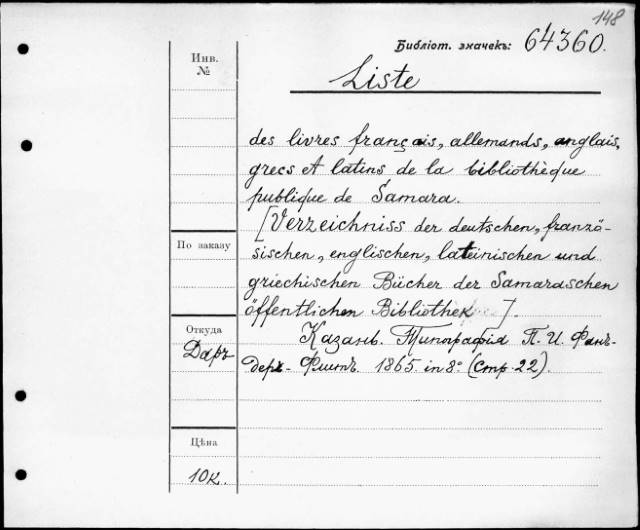 148
Библіот. значекъ: 64360.
Инв.
№
Liste
des livres français, allemands, anglais,
grecs et latins de la bibliothèque
publique de Samara.
[Verzeichniss der deutschen, franzö-
sischen, englischen, lateinischen und
griechischen Bücher der Samaraschen
öffentlichen Bibliothek].
По заказу
Откуда
Даръ
Казань. Типографія П. И. Фанъ-
деръ-Флитъ. 1865. in 8° (стр. 22).
Цѣна
10к.